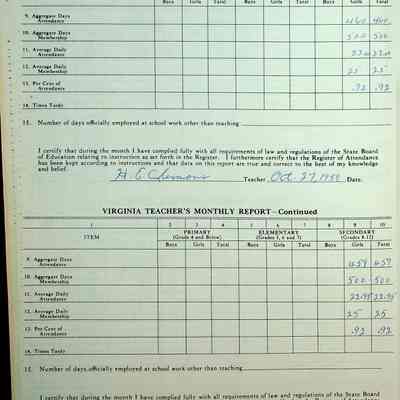 Boys Girls Total Boys Girls Total Boys Girls Total
9. Aggregate Days Attendance 460 460
10. Aggregate Days Membership 500 500
11. Average Daily Attendance
12. Average Daily Membership 25 25
13. Per Cent of Attendance .92 .92
14. Times Tardy
15. Number of days officially employed at school work other than teaching
I certify that during the month I have complied fully with all requirements of law and regulations of the State Board
of Education relating to instruction as set forth in the Register. I furthermore certify that the Register of Attendance
has been kept according to instructions and that data on this report are true and correct to the best of my knowledge
and belief.
Teacher Oct. 27, Date.
VIRGINIA TEACHER'S MONTHLY REPORT—Continued
1 2 3 4 5 6 7 8 9 10
ITEM PRIMARY (Grade 4 and Below) ELEMENTARY (Grades 5, 6 and 7) SECONDARY (Grades 8-12)
Boys Girls Total Boys Girls Total Boys Girls Total
9. Aggregate Days Attendance 459 459
10. Aggregate Days Membership 500 500
11. Average Daily Attendance 22.95 22.95
12. Average Daily Membership 25 25
13. Per Cent of Attendance .92 .92
14. Times Tardy
15. Number of days officially employed at school work other than teaching
I certify that during the month I have complied fully with all requirements of law and regulations of the State Board